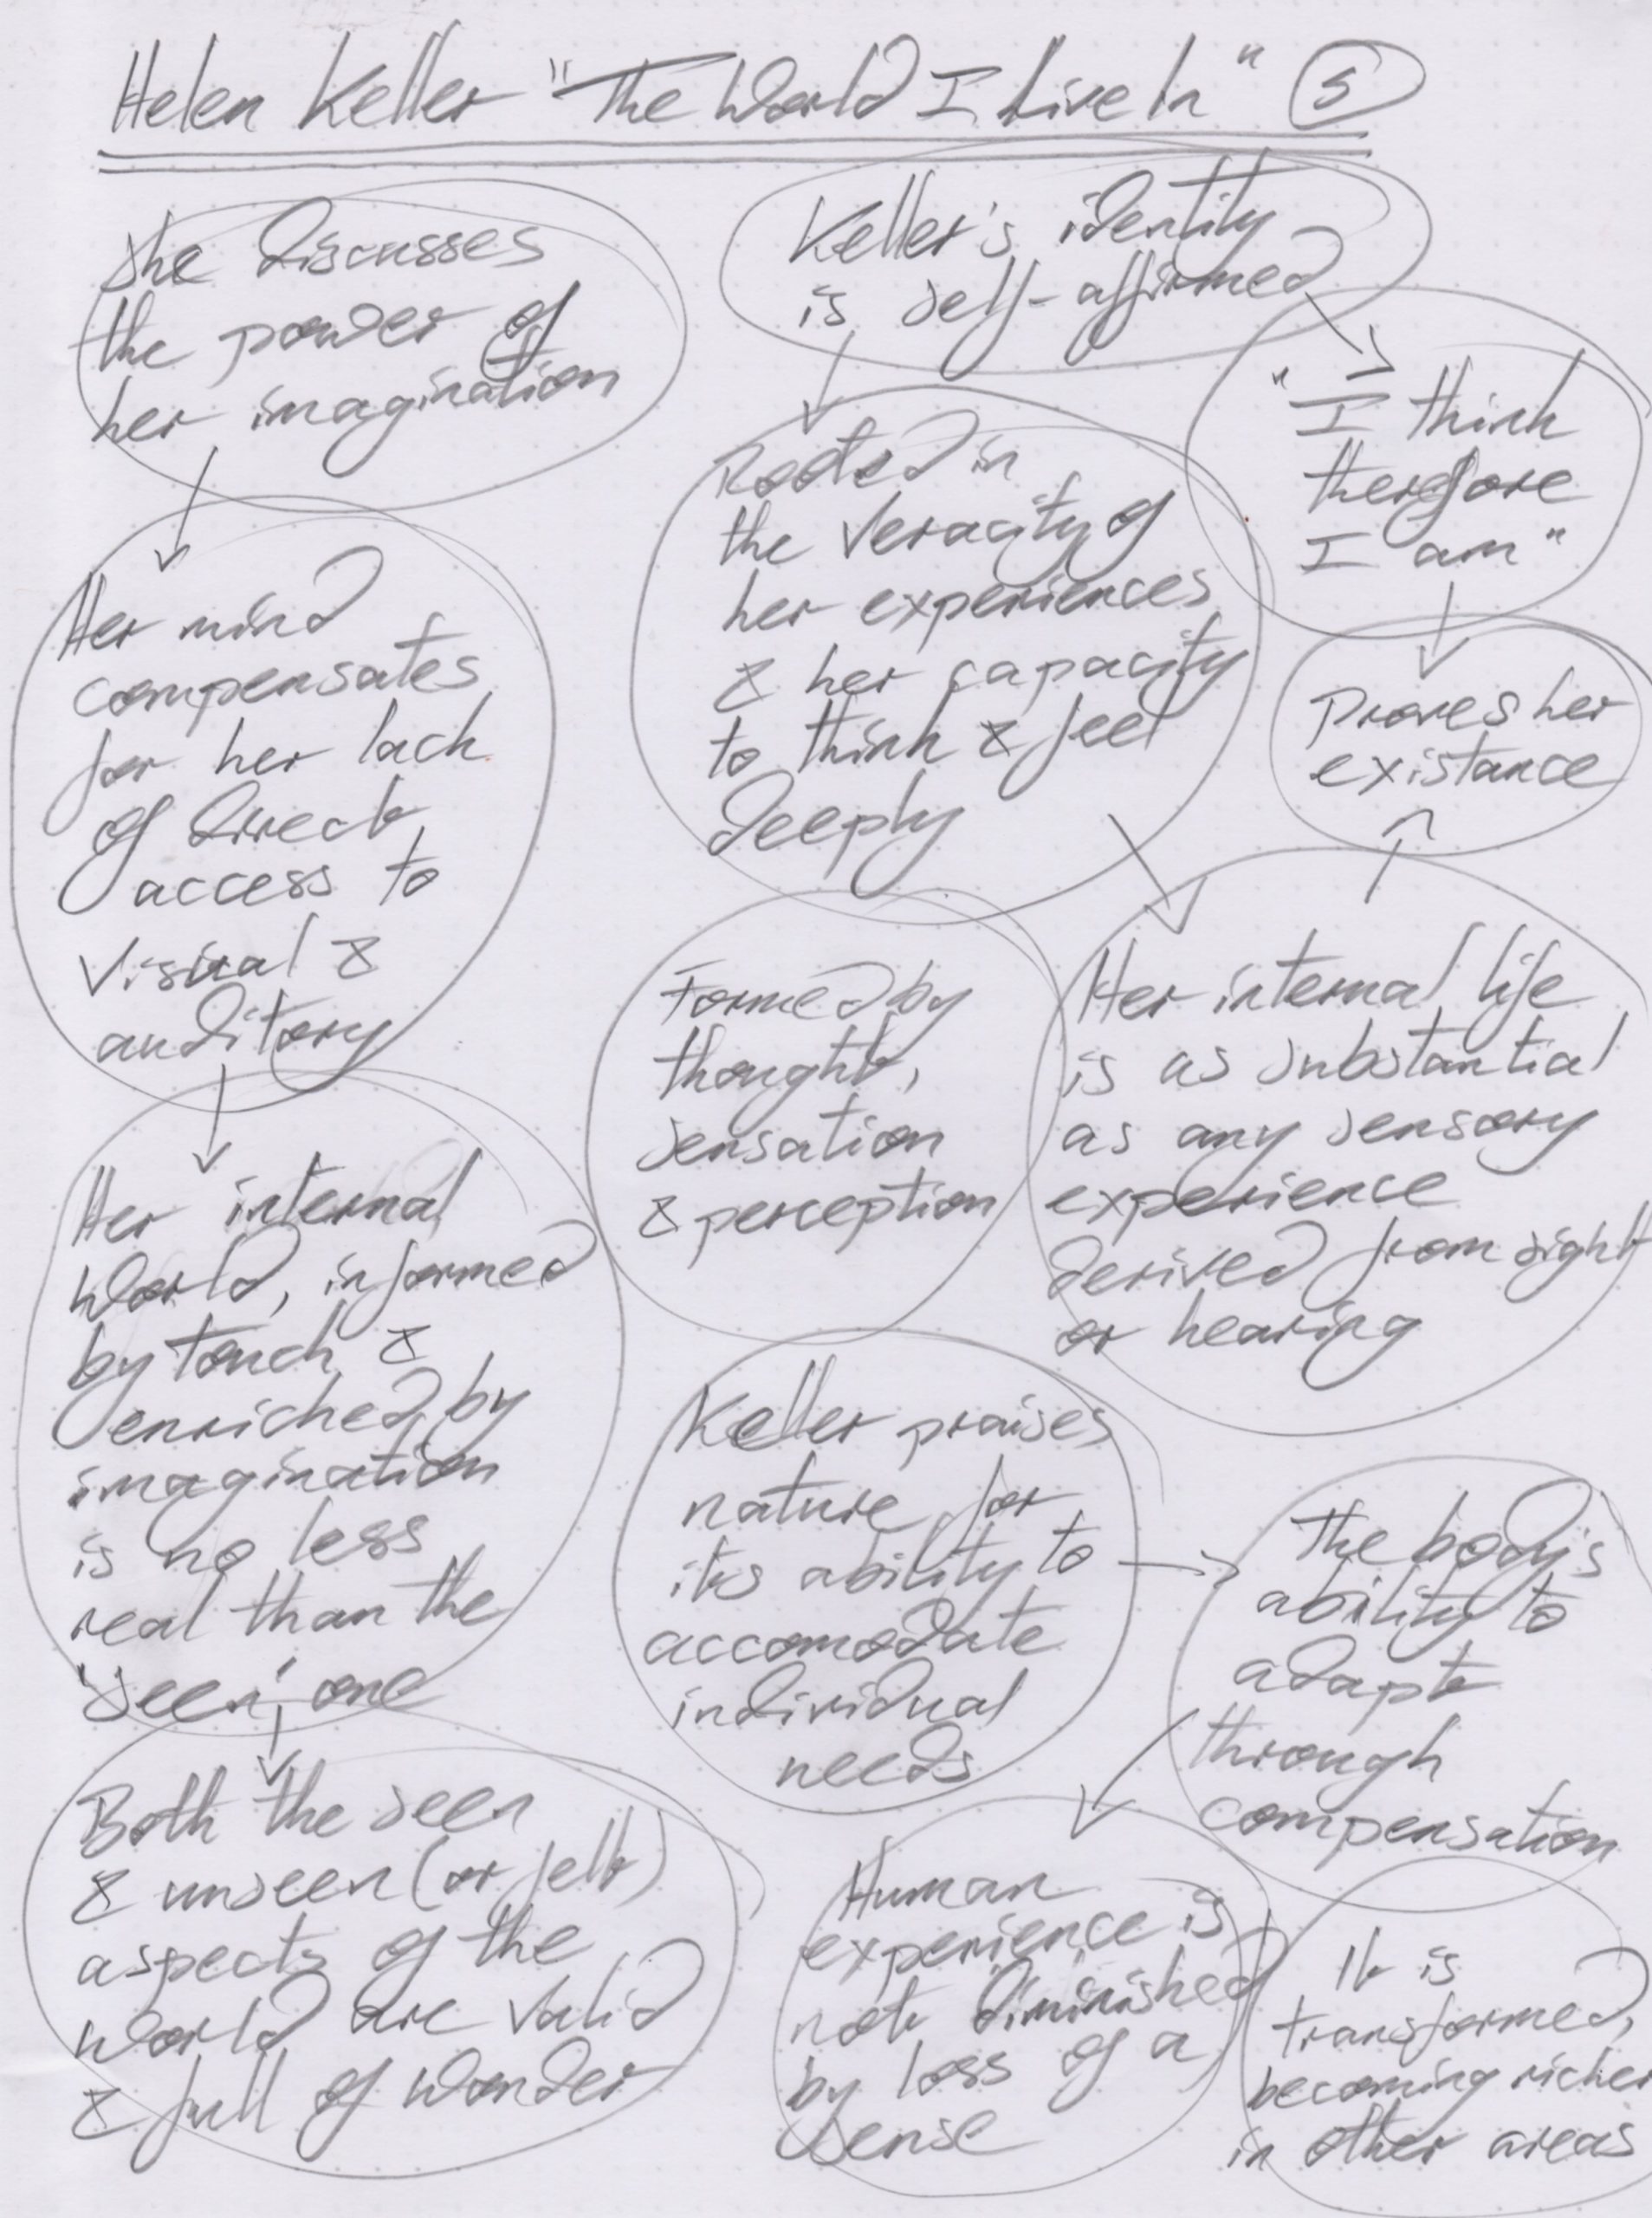 Helen Keller "The World I Live In" 5
She discusses
the power of
her imagination
Her mind
compensates
for her lack
of direct
access to
visual &
auditory
Her internal
world, informed
by touch &
enriched by
imagination
is no less
real than the
"seen", one
Both the seen
& unseen (or felt)
aspects of the
world are valid
& full of wonder
Keller's identity
is self-affirmed
Rooted in
the veracity of
her experiences
& her capacity
to think & feel
deeply
"I think
therefore
I am"
Proves her
existance
Formed by
thought,
sensation
& perception
Her internal life
is as substantial
as any sensory
experience
derived from sight
or hearing
Keller praises
nature for
its ability to
accomodate
individual
needs
The body's
ability to
adapt
through
compensation
Human
experience is
not diminished
by loss of a
sense
It is
transformed,
becoming richer
in other areas